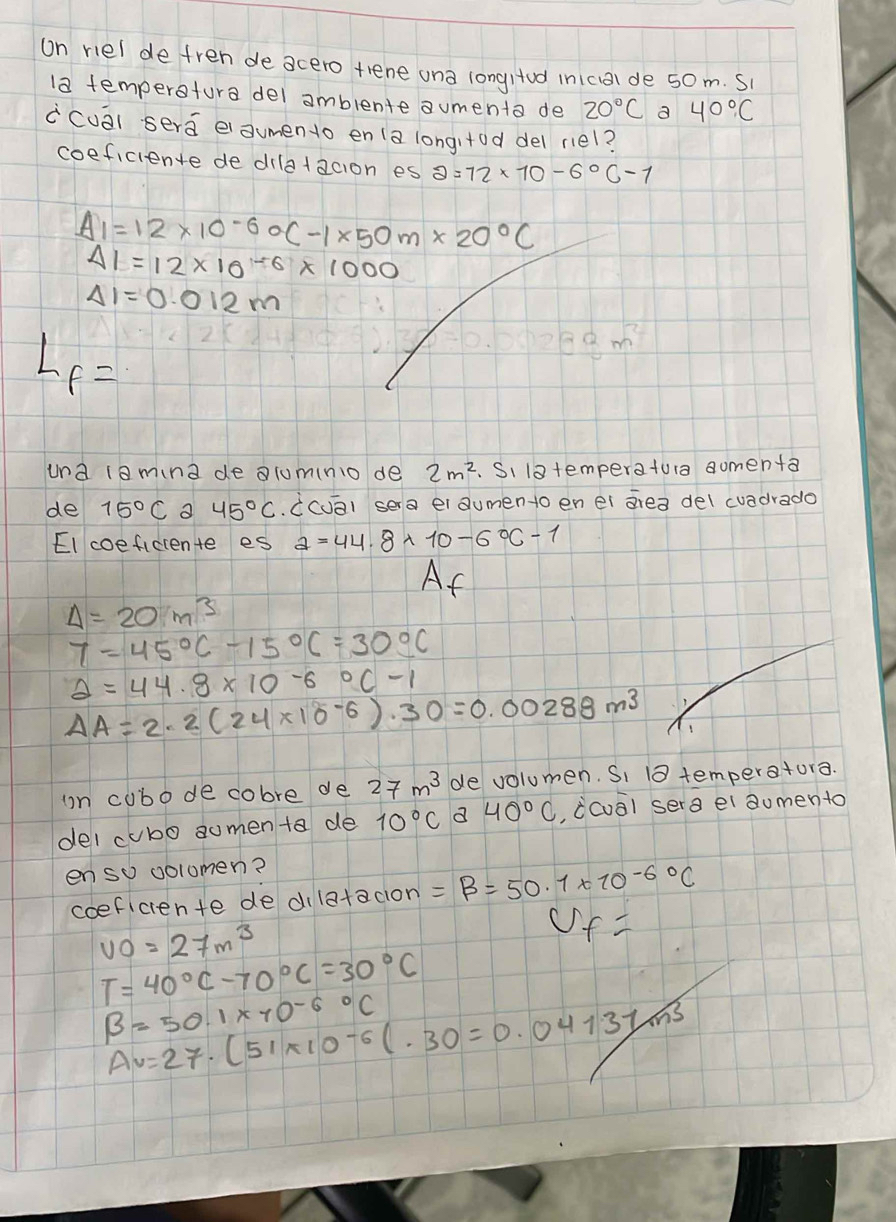 Un riel de tren de acero tiene una longitud inicial de 50 m. Si
la temperatura del ambiente aumenta de 20°C a 40°C
¿cuál será el aumento en la longitud del riel?
coeficiente de dilatacion es a=12×10-6°C-1
Δl=12×10⁻⁶°C-1×50m×20°C
Δl=12×10⁻⁶×1000
Δl=0.012m
Lf=
una lamina de aluminio de 2m². Si la temperatura aumenta
de 15°C a 45°C. ¿cuál sera el aumento en el área del cuadrado
El coeficiente es a=44.8×10-6°C-1
Af
Δ=20m³
T=45°C-15°C=30°C
a=44.8×10⁻⁶ °C-1
ΔA=2.2(24×10⁻⁶).30=0.00288m³
Un cubo de cobre de 27m³ de volumen. Si la temperatura.
del cubo aumenta de 10°C a 40°C, ¿cuál será el aumento
en su volumen?
coeficiente de dilatacion = β=50.1×10⁻⁶°C
Uf=
VO=27m³
T=40°C-10°C=30°C
β=50.1×10⁻⁶ °C
Δv=27.(51×10⁻⁶(.30=0.04131m³